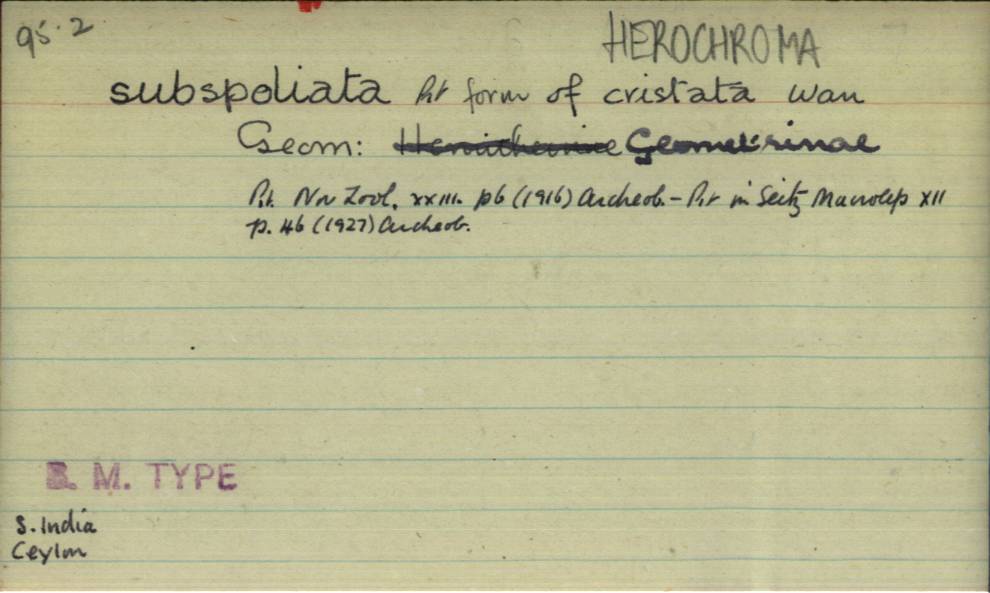 95.2
HEROCHROMA
subspoliata Prt form of cristata Warr
Geom: Hemitheinae Geometrinae
Prt. Nov Zool. xxiii. p6 (1916) Archeob. - Prt in Seitz Macrolep XII
p. 46 (1927) Archeob.
B. M. TYPE
S. India
Ceylon